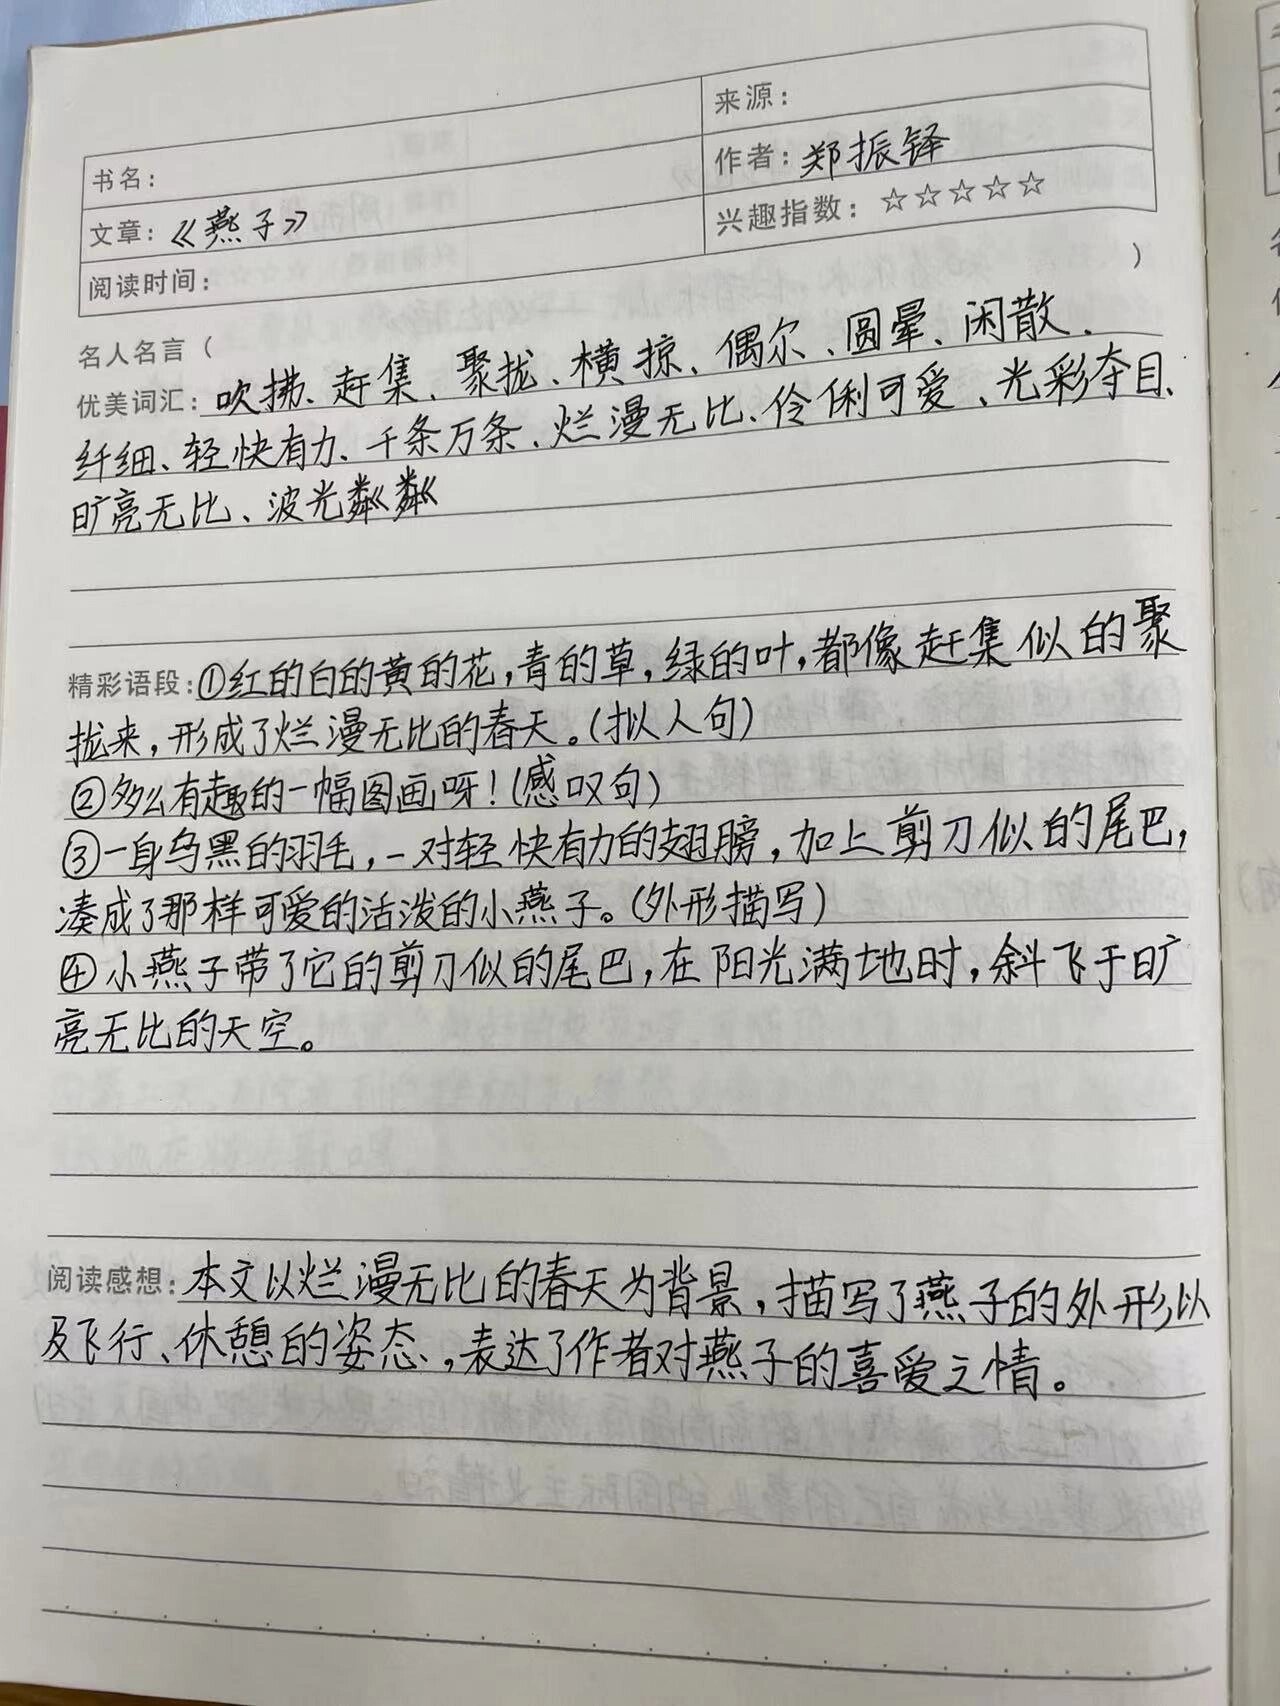 来源：
书名：
作者：郑振铎
文章：《燕子》
兴趣指数：☆☆☆☆☆
阅读时间：
名人名言（ ）
优美词汇：吹拂、赶集、聚拢、横掠、偶尔、圆晕、闲散、
纤细、轻快有力、千条万条、烂漫无比、伶俐可爱、光彩夺目、
旷亮无比、波光粼粼
精彩语段：①红的白的黄的花，青的草，绿的叶，都像赶集似的聚
拢来，形成了烂漫无比的春天。（拟人句）
②多么有趣的一幅图画呀！（感叹句）
③一身乌黑的羽毛，一对轻快有力的翅膀，加上剪刀似的尾巴，
凑成了那样可爱的活泼的小燕子。（外形描写）
④小燕子带了它的剪刀似的尾巴，在阳光满地时，斜飞于旷
亮无比的天空。
阅读感想：本文以烂漫无比的春天为背景，描写了燕子的外形以
及飞行、休憩的姿态，表达了作者对燕子的喜爱之情。